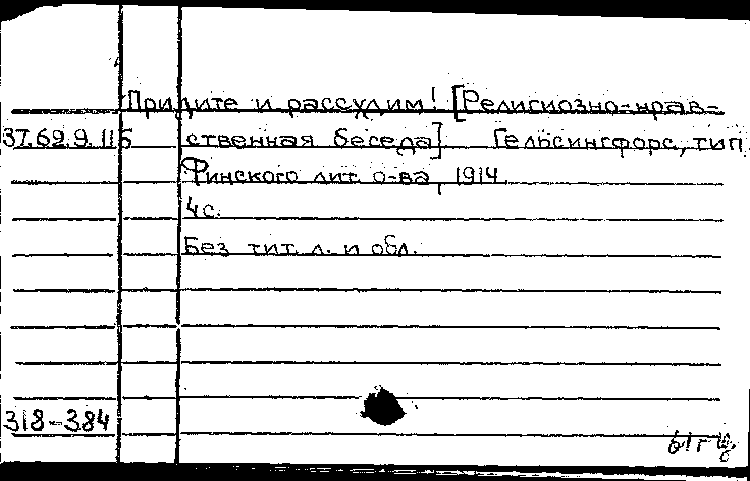 Придите и рассудим! [Религиозно-нрав-
37.62.9.115 ственная беседа] Гельсингфорс, тип.
Финского лит. о-ва, 1914.
4 с.
Без тит. л. и обл.
318-384